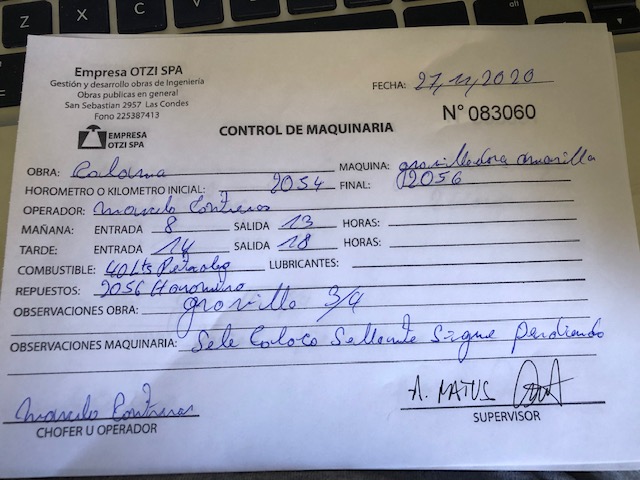 Empresa OTZI SPA
Gestión y desarrollo obras de Ingeniería
Obras publicas en general
San Sebastian 2957 Las Condes
Fono 225387413
FECHA: 27/11/2020
EMPRESA
OTZI SPA
CONTROL DE MAQUINARIA
N° 083060
OBRA: Colonia MAQUINA: gravilladora amarilla
HOROMETRO O KILOMETRO INICIAL: 2054 FINAL: 2056
OPERADOR: Marcelo Contreras
MAÑANA: ENTRADA 8 SALIDA 13 HORAS:
TARDE: ENTRADA 14 SALIDA 18 HORAS:
COMBUSTIBLE: 40 Lts Petroleo LUBRICANTES:
REPUESTOS: 2056 Horometro
OBSERVACIONES OBRA: gravilla 3/4
OBSERVACIONES MAQUINARIA: Se le Coloco Sellante Sigue perdiendo
Marcelo Contreras
CHOFER U OPERADOR
A. MATUS
SUPERVISOR
Z
X
C
alt